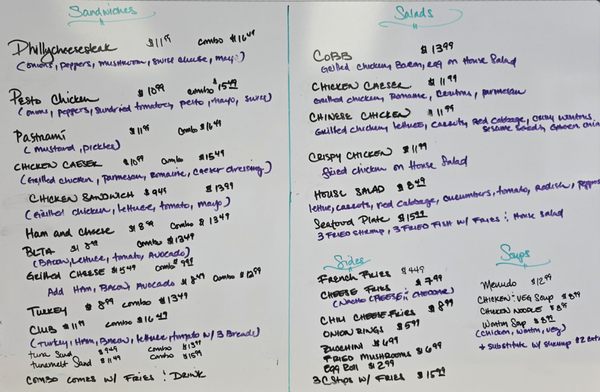 Sandwiches
Phillycheesesteak $11.99 combo $16.49
(onions, peppers, mushroom, swiss cheese, mayo)
Pesto Chicken $10.99 combo $15.49
(onions, peppers, sundried tomatoes, pesto, mayo, swiss)
Pastrami $11.99 combo $16.49
(mustard, pickles)
CHICKEN CAESER $10.99 combo $15.49
(Grilled chicken, parmesan, Romaine, caeser dressing)
CHICKEN SANDWICH $9.49 $13.99
(Grilled chicken, lettuce, tomato, mayo)
Ham and Cheese $8.99 Combo $13.49
BLTA $8.99 Combo $13.49
(BACON, Lettuce, tomato, AVOCADO)
Grilled CHEESE $5.49 combo $9.99
Add HAM, BACON AVOCADO $8.49 combo $12.99
TURKEY $8.99 combo $13.49
CLUB $11.99 combo $16.49
(Turkey, Ham, Bacon, lettuce, tomato w/ 3 Breads)
tuna Sand $9.49 Combo $13.99
tunamelt Sand $11.49 Combo $15.99
COMBO COMES W/ FRIES & DRINK
Salads
COBB $13.99
Grilled chicken, Bacon, egg on House Salad
CHICKEN CAESER $11.99
Grilled chicken, Romaine, Croutons, parmesan
CHINESE CHICKEN $11.99
Grilled chicken, lettuce, carrots, red cabbage, crispy wontons
sesame seeds,
CRISPY CHICKEN $11.99
fried chicken on House Salad
HOUSE SALAD $8.49
lettuce, carrots, red cabbage, cucumbers, tomato, radish,
Seafood Plate $15.99
3 FRIED SHRIMP, 3 FRIED FISH w/ FRIES & House Salad
Sides
French Fries $4.49
CHEESE FRIES $7.99
(Nacho CHEESE & CHEDDAR)
CHILI CHEESE FRIES $8.99
ONION RINGS $5.99
ZUCCHINI $6.99
FRIED MUSHROOMS $6.99
Egg Roll $2.99
3C Strips w/ FRIES $15.99
Soups
Menudo $12.99
CHICKEN VEG SOUP $8.99
CHICKEN NOODLE $8.99
Wonton Soup $8.99
(Chicken, wonton, veg)
+ substitute w/ shrimp $2 Extra